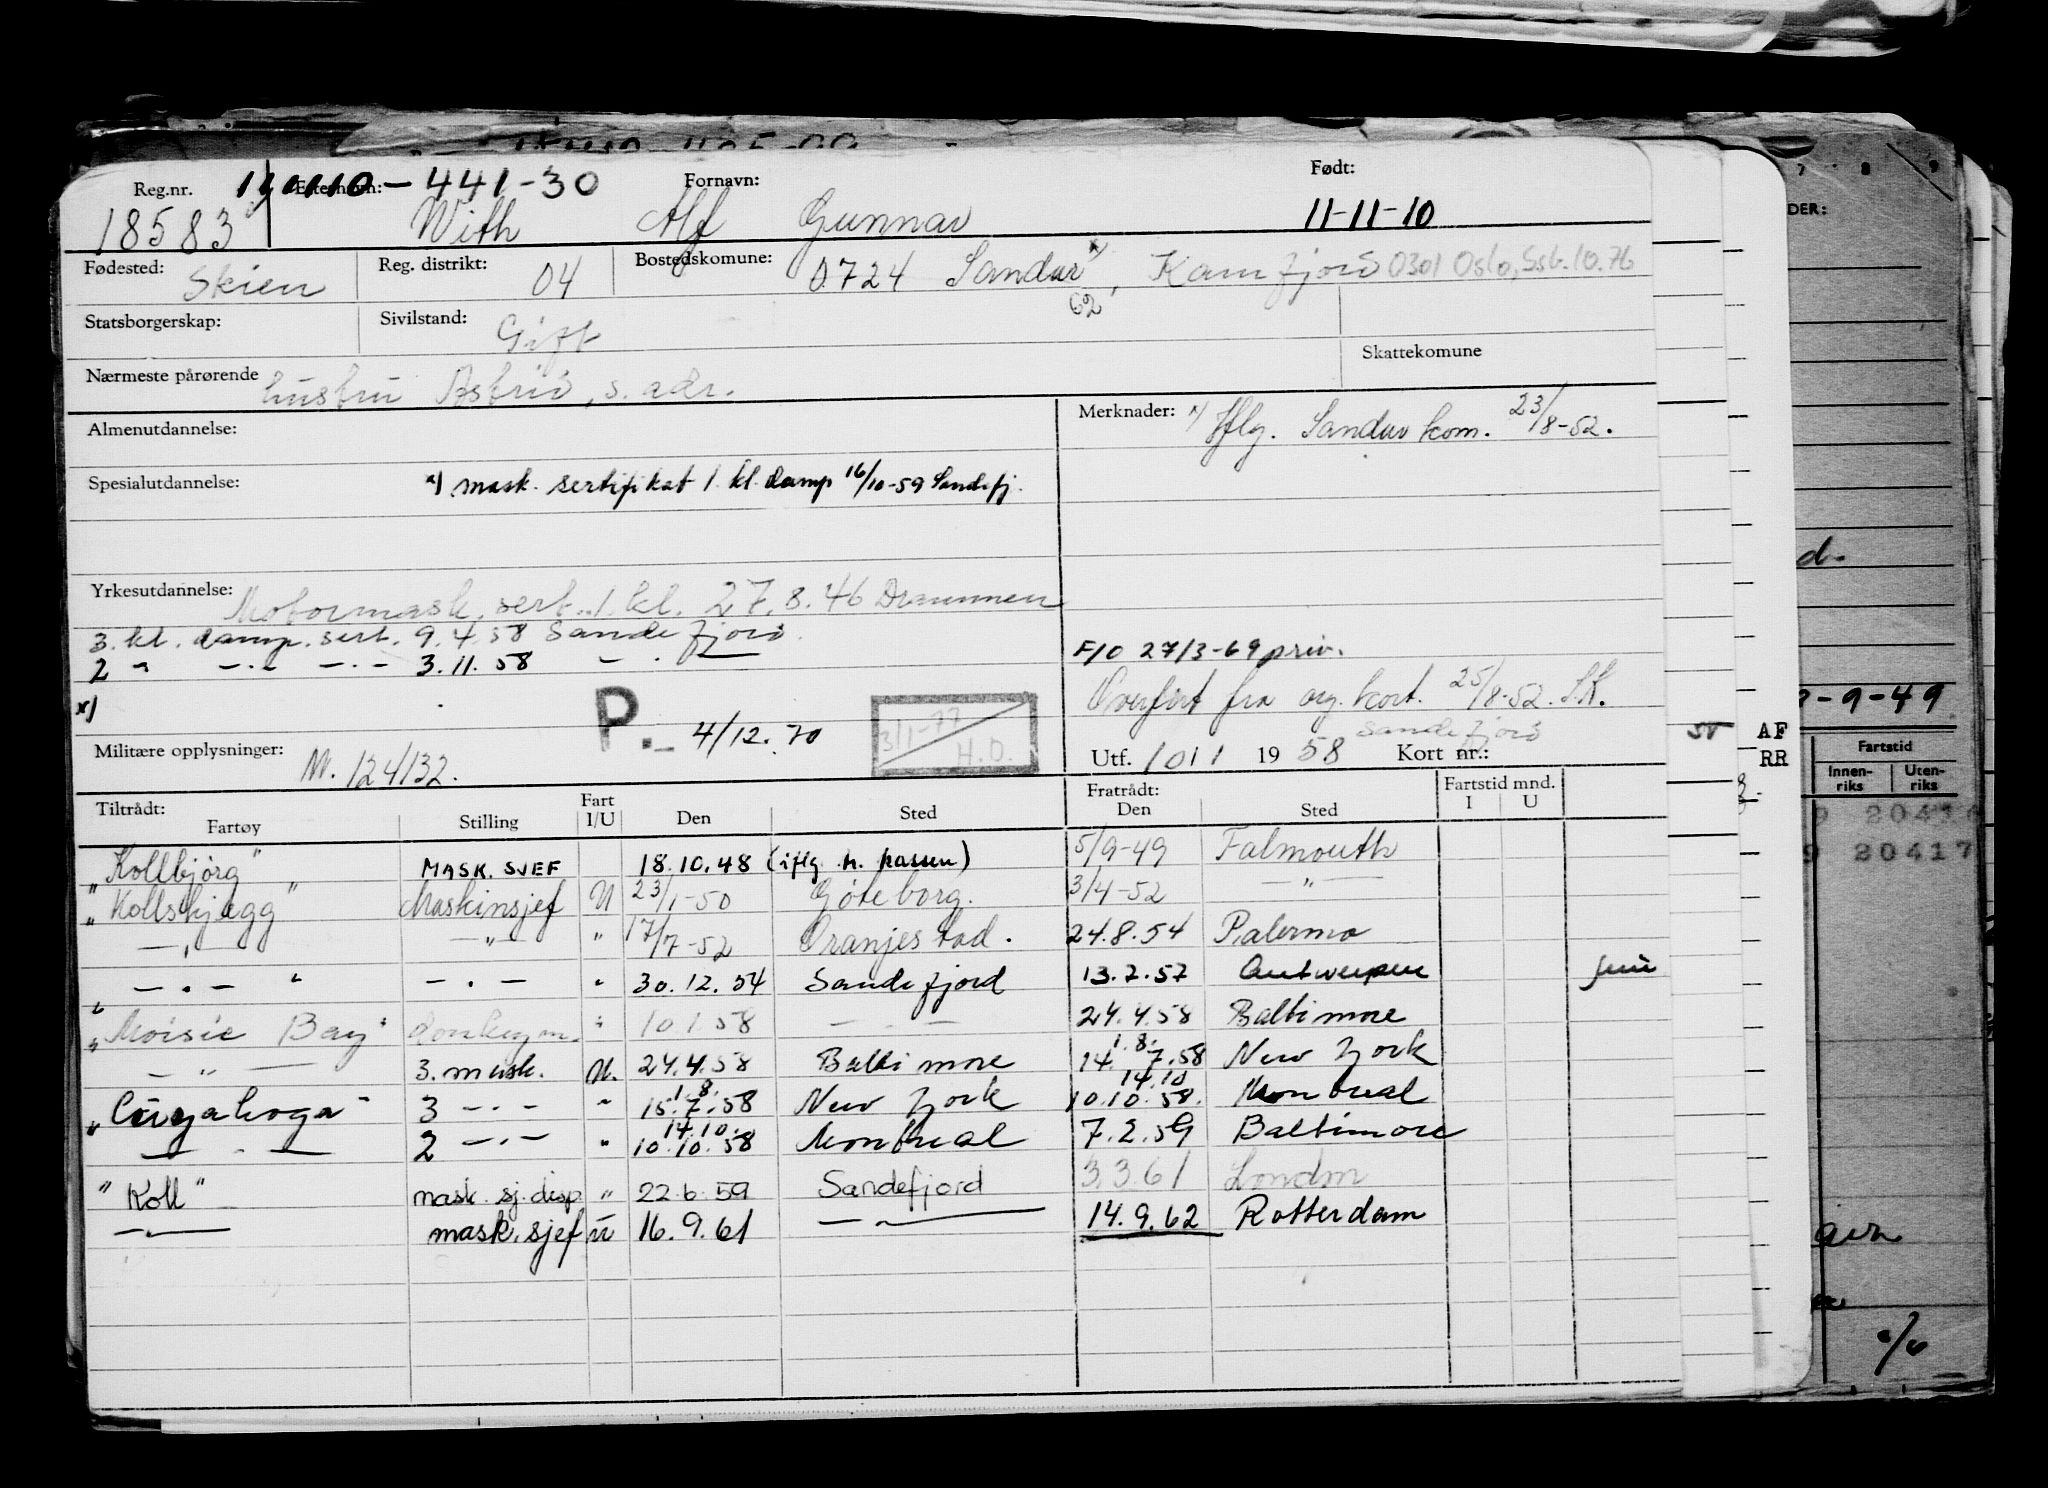 Reg.nr. Etternavn: 441-30 Fornavn: Født:
18583 With Alf Gunnar 11-11-10
Fødested: Skien Reg. distrikt: 04 Bostedskomune: 0724 Sandar x), Kamfjord 0301 Oslo, Ssb. 10.76
62
Statsborgerskap: Sivilstand: Gift
Skattekomune
Nærmeste pårørende hustru Astrid, s. adr.
Almenutdannelse: Merknader: x) Iflg. Sandar kom. 23/8-52.
Spesialutdannelse: x) mask. sertifikat 1. kl. damp 16/10-59 Sandefj.
Yrkesutdannelse: Motormask. sert. 1. kl. 27.8.46 Drammen
3. kl. damp. sert. 9.4.58 Sandefjord.
2 " -.- -.- 3.11.58 - . -
F/O 27/3-69 priv.
x)
Overført fra org. kort. 25/8-52. S.K.
P. 4/12.70 3/1-77 H.O.
Sandefjord
Militære opplysninger: M. 124/132. Utf. 10/1 1958 Kort nr.:
Tiltrådt: Fratrådt: Fartstid mnd.
Fartøy Stilling Fart I/U Den Sted Den Sted I U
"Kollbjørg" MASK. SJEF 18.10.48 (iflg. h. passen) 5/9-49 Falmouth
"Kollskjegg" Maskinsjef U 23/1-50 Gøteborg. 3/4-52 — " —
— " — — " — " 17/7-52 Oranjestad. 24.8.54 Palermo
" — . — " — . — " 30.12.54 Sandefjord 13.2.57 Antwerpen
"Moisie Bay" donkeym. " 10.1.58 — . — 24.4.58 Baltimore
— " — 3. mask. U. 24.4.58 Baltimore 14.7.58 1.8. New York
"Cuyahoga" 3 — . — " 15.7.58 1.8. New York 10.10.58. 14.10 Montreal
— . — 2 — . — " 10.10.58 14.10. Montreal 7.2.59 Baltimore
"Koll" mask. sj. disp " 22.6.59 Sandefjord 3.3.61 London
— . — mask. sjef u 16.9.61 — " — 14.9.62 Rotterdam
DER:
d.
-9-49
Fartstid
Innenriks Utenriks
20417
50 AF
RR